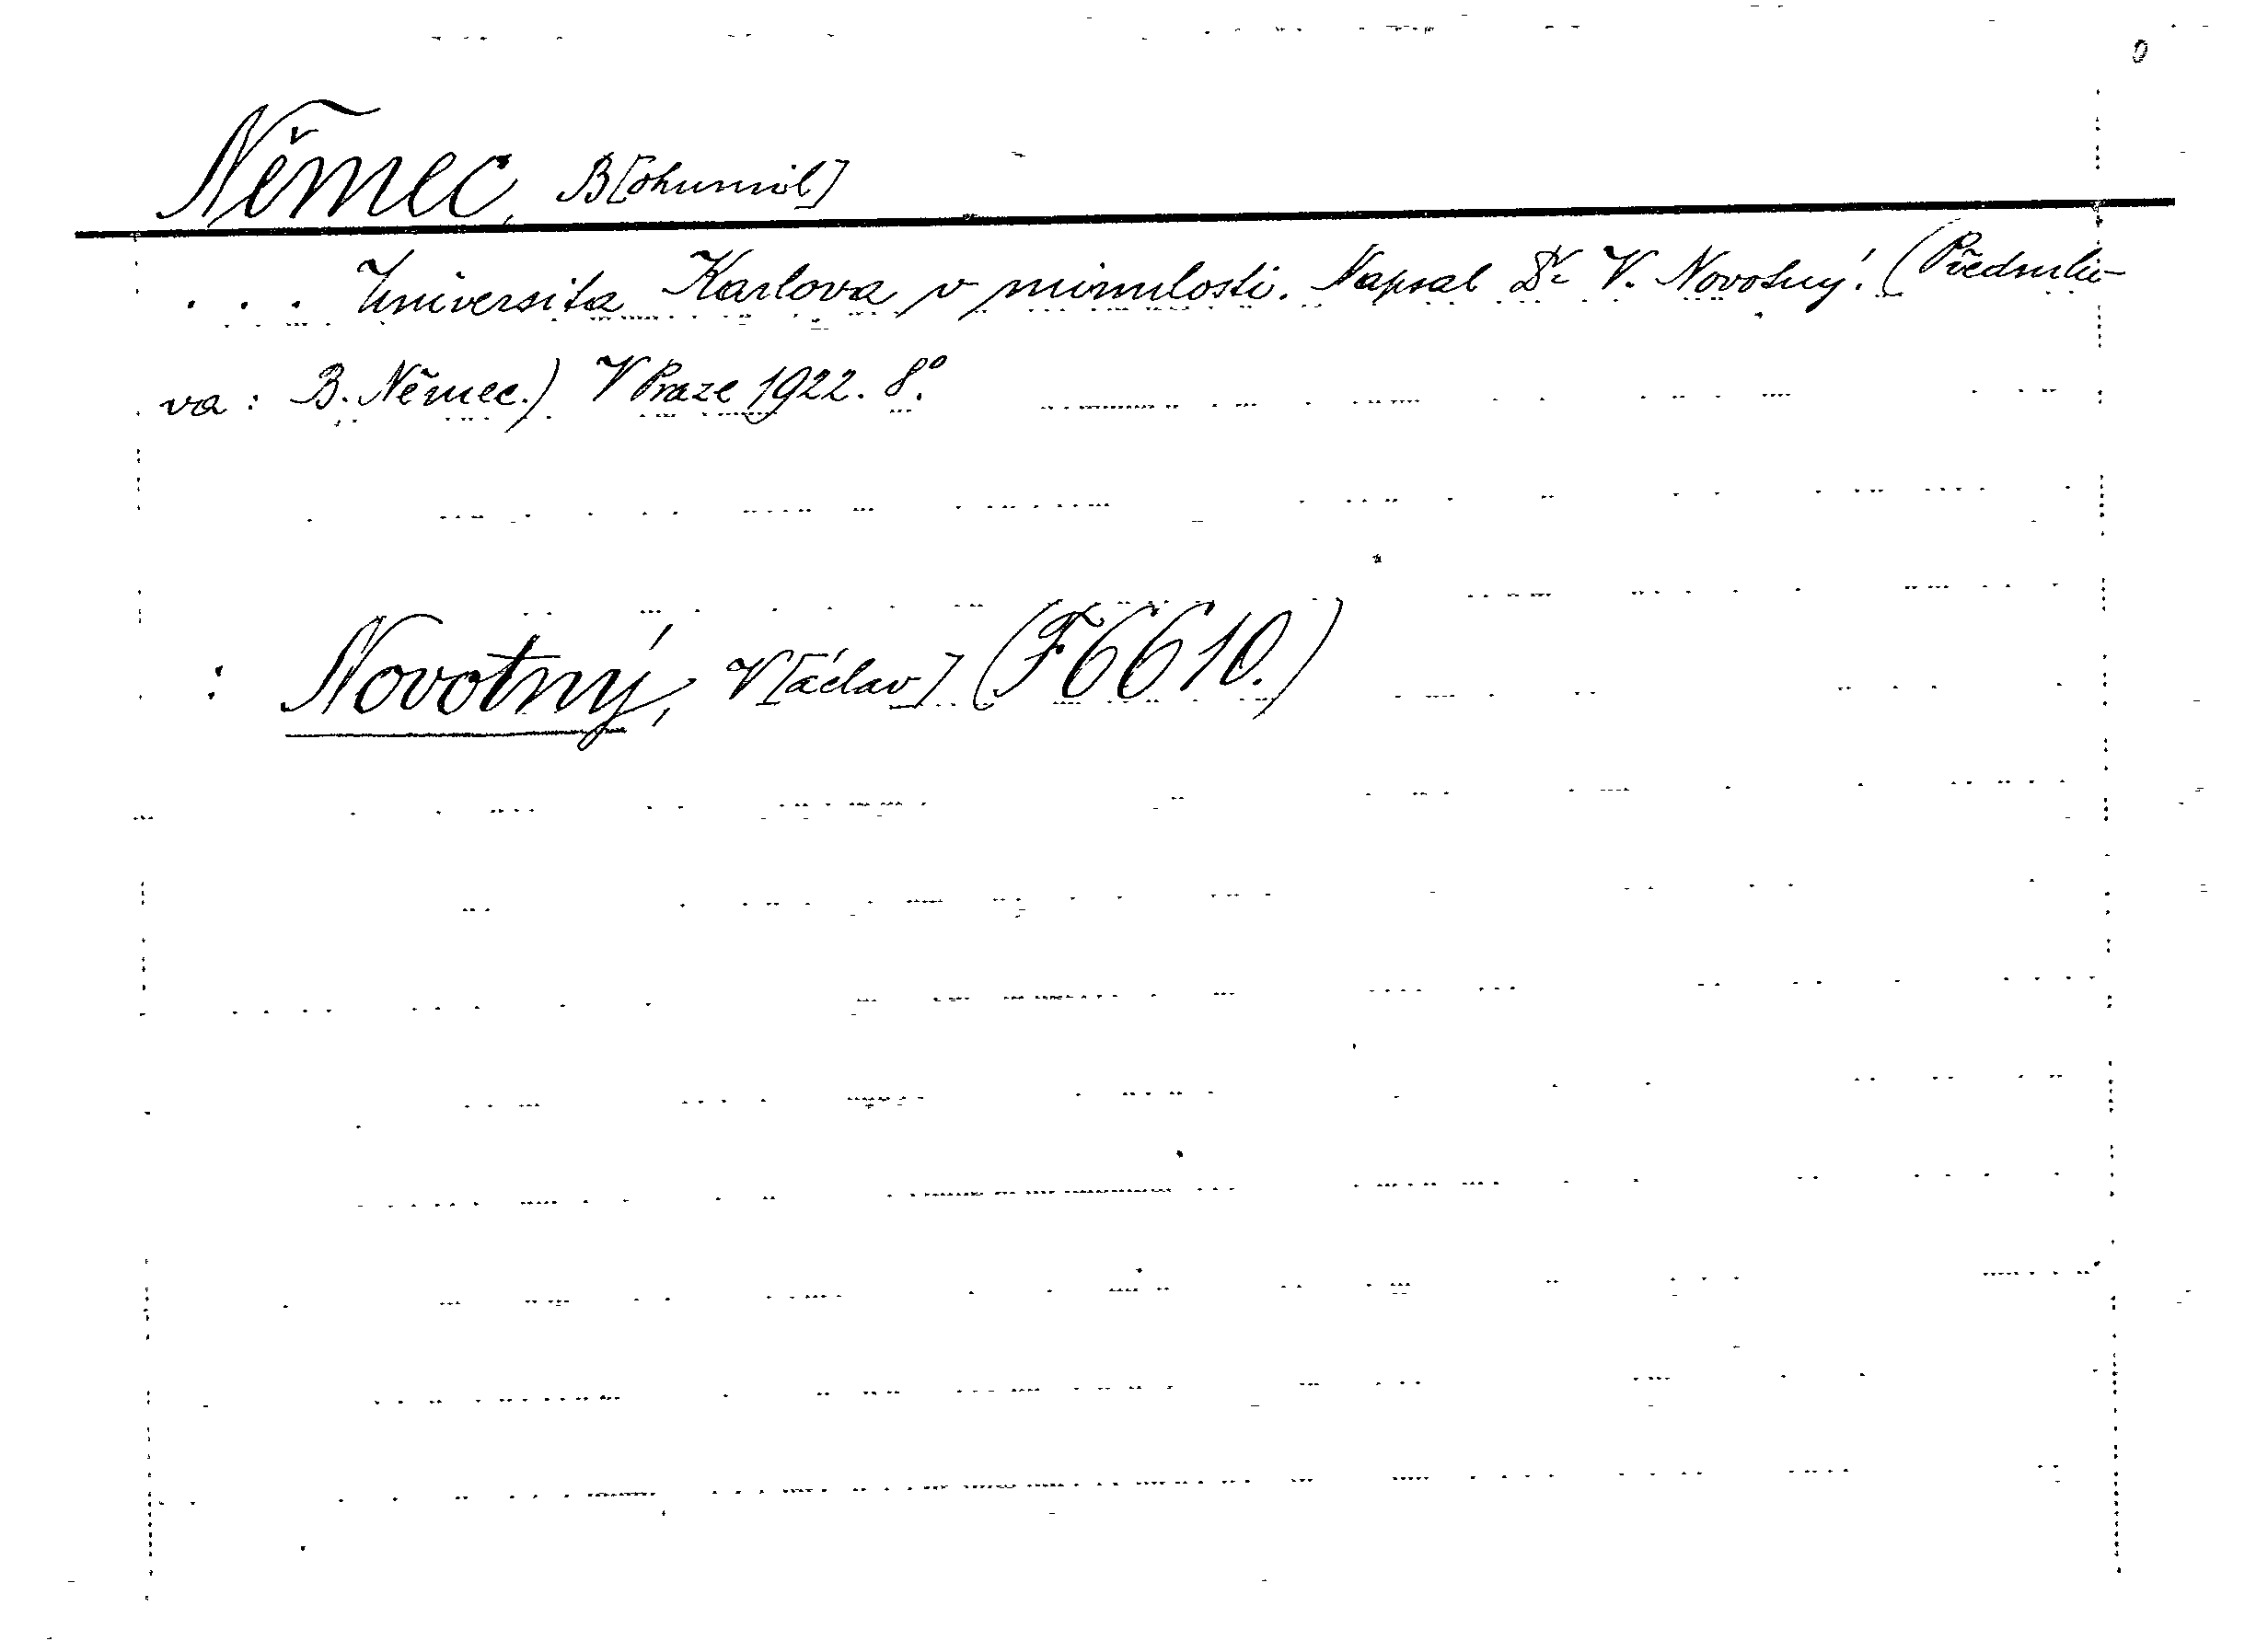 Němec, B[ohumil]
. . . Universita Karlova v minulosti. Napsal Dr V. Novotný. (Předmlu-
va: B. Němec.) V Praze 1922. 8°.
: Novotný, V[áclav] (F6610.)